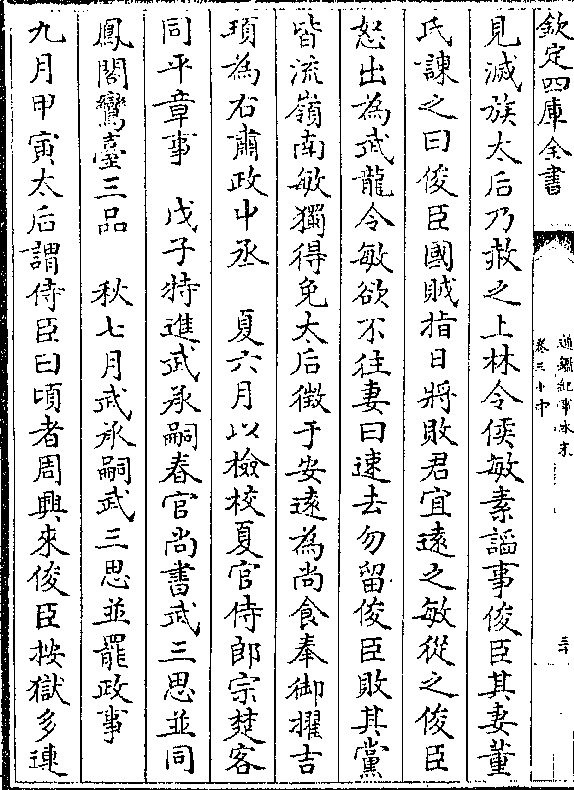 欽定四庫全書
通鑑紀事本末
卷三十中
三十
見滅族太后乃赦之上林令侯敏素謟事俊臣其妻董
氏諫之曰俊臣國賊指日將敗君宜遠之敏從之俊臣
怒出為武龍令敏欲不往妻曰速去勿留俊臣敗其黨
皆流嶺南敏獨得免太后徵于安逺為尚食奉御擢吉
頊為右肅政中丞　夏六月以檢校夏官侍郎宗楚客
同平章事　戊子特進武承嗣春官尚書武三思並同
鳳閣鸞臺三品　秋七月武承嗣武三思並罷政事
九月甲寅太后謂侍臣曰頃者周興來俊臣按獄多連